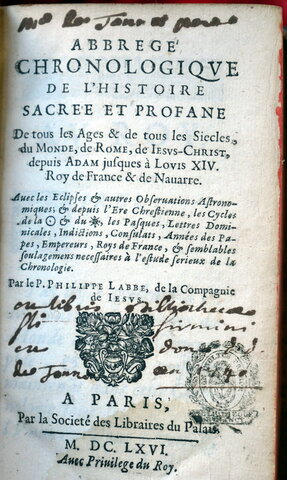 ABBREGÉ
CHRONOLOGIQVE
DE L'HISTOIRE
SACREE ET PROFANE
De tous les Ages & de tous les Siecles,
du MONDE, de ROME, de IESVS-CHRIST,
depuis ADAM jusques à LOVIS XIV.
Roy de France & de Nauarre.
Auec les Eclipses & autres Obseruations Astrono-
miques; & depuis l'Ere Chrestienne, les Cycles
de la ☉ & du, les Pasques, Lettres Domi-
nicales, Indictions, Consulats, Années des Pa-
pes, Empereurs, Roys de France, & semblables
soulagemens necessaires à l'estude serieux de la
Chronologie.
Par le P. PHILIPPE LABBE, de la Compagnie
de IESVS.
A PARIS,
Par la Societé des Libraires du Palais.
M. DC. LXVI.
Auec Priuilege du Roy.